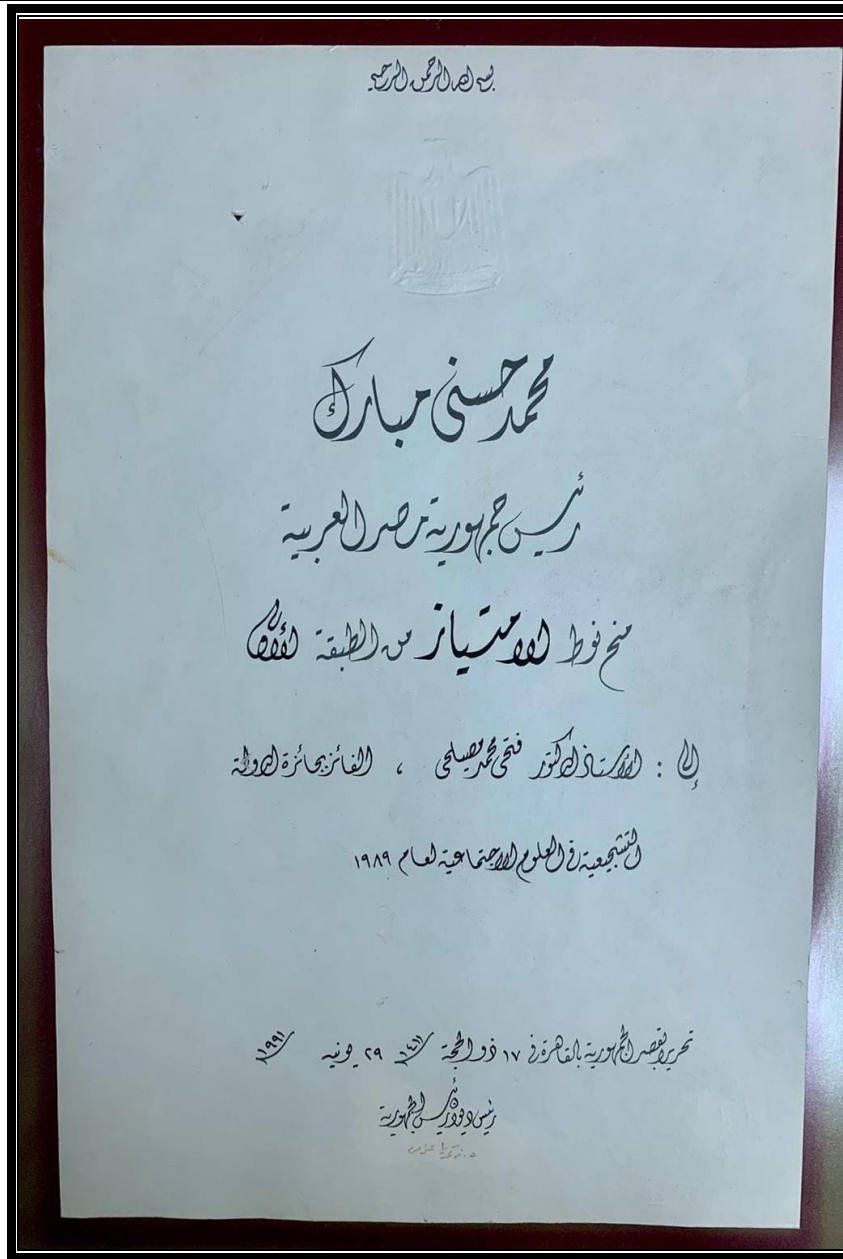 بسم الله الرحمن الرحيم
محمد حسنى مبارك
رئيس جمهورية مصر العربية
منح نوط الامتياز من الطبقة الأولى
إلى : الأستاذ الدكتور فتحى محمد مصيلحى ، الفائز بجائزة الدولة
التشجيعية فى العلوم الاجتماعية لعام ١٩٨٩
تحريرا بقصر الجمهورية بالقاهرة فى ١٧ ذو الحجة ١٤١١ ٢٩ يونيه ١٩٩١
رئيس ديوان رئيس الجمهورية
د. زكريا عزمى